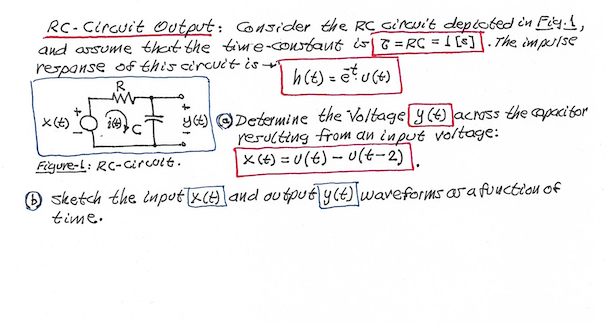 RC-Circuit Output: Consider the RC circuit depicted in Fig.1,
and assume that the time-constant is τ = RC = 1 [s]. The impulse
response of this circuit is → h(t) = e^-t. u(t)
R
x(t) + - i(t) C + y(t) -
Figure-1: RC-Circuit.
(a) Determine the Voltage y(t) across the capacitor
resulting from an input voltage:
x(t) = u(t) - u(t-2).
(b) Sketch the input x(t) and output y(t) waveforms as a function of
time.